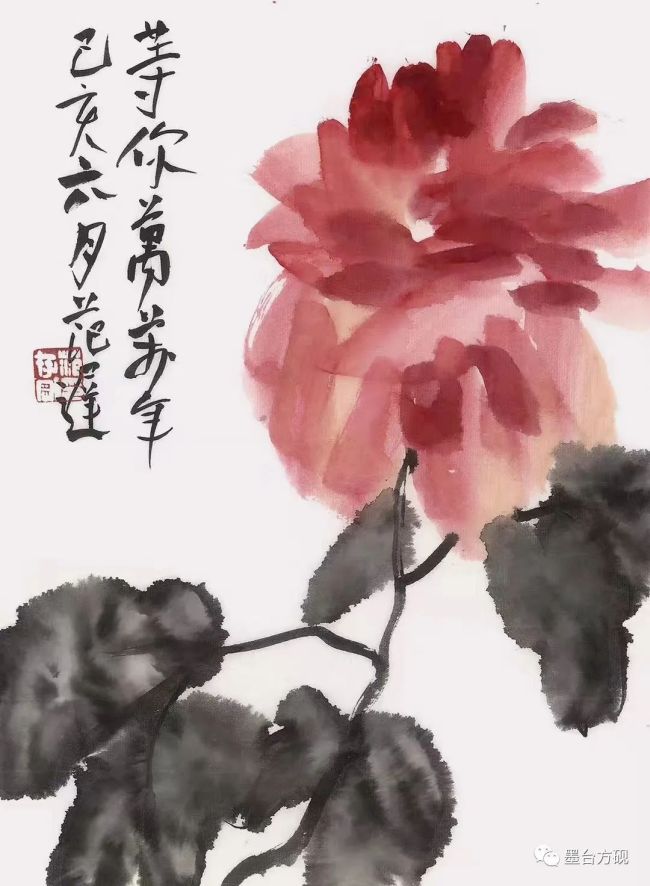 等你萬年
己亥六月范
墨台方砚